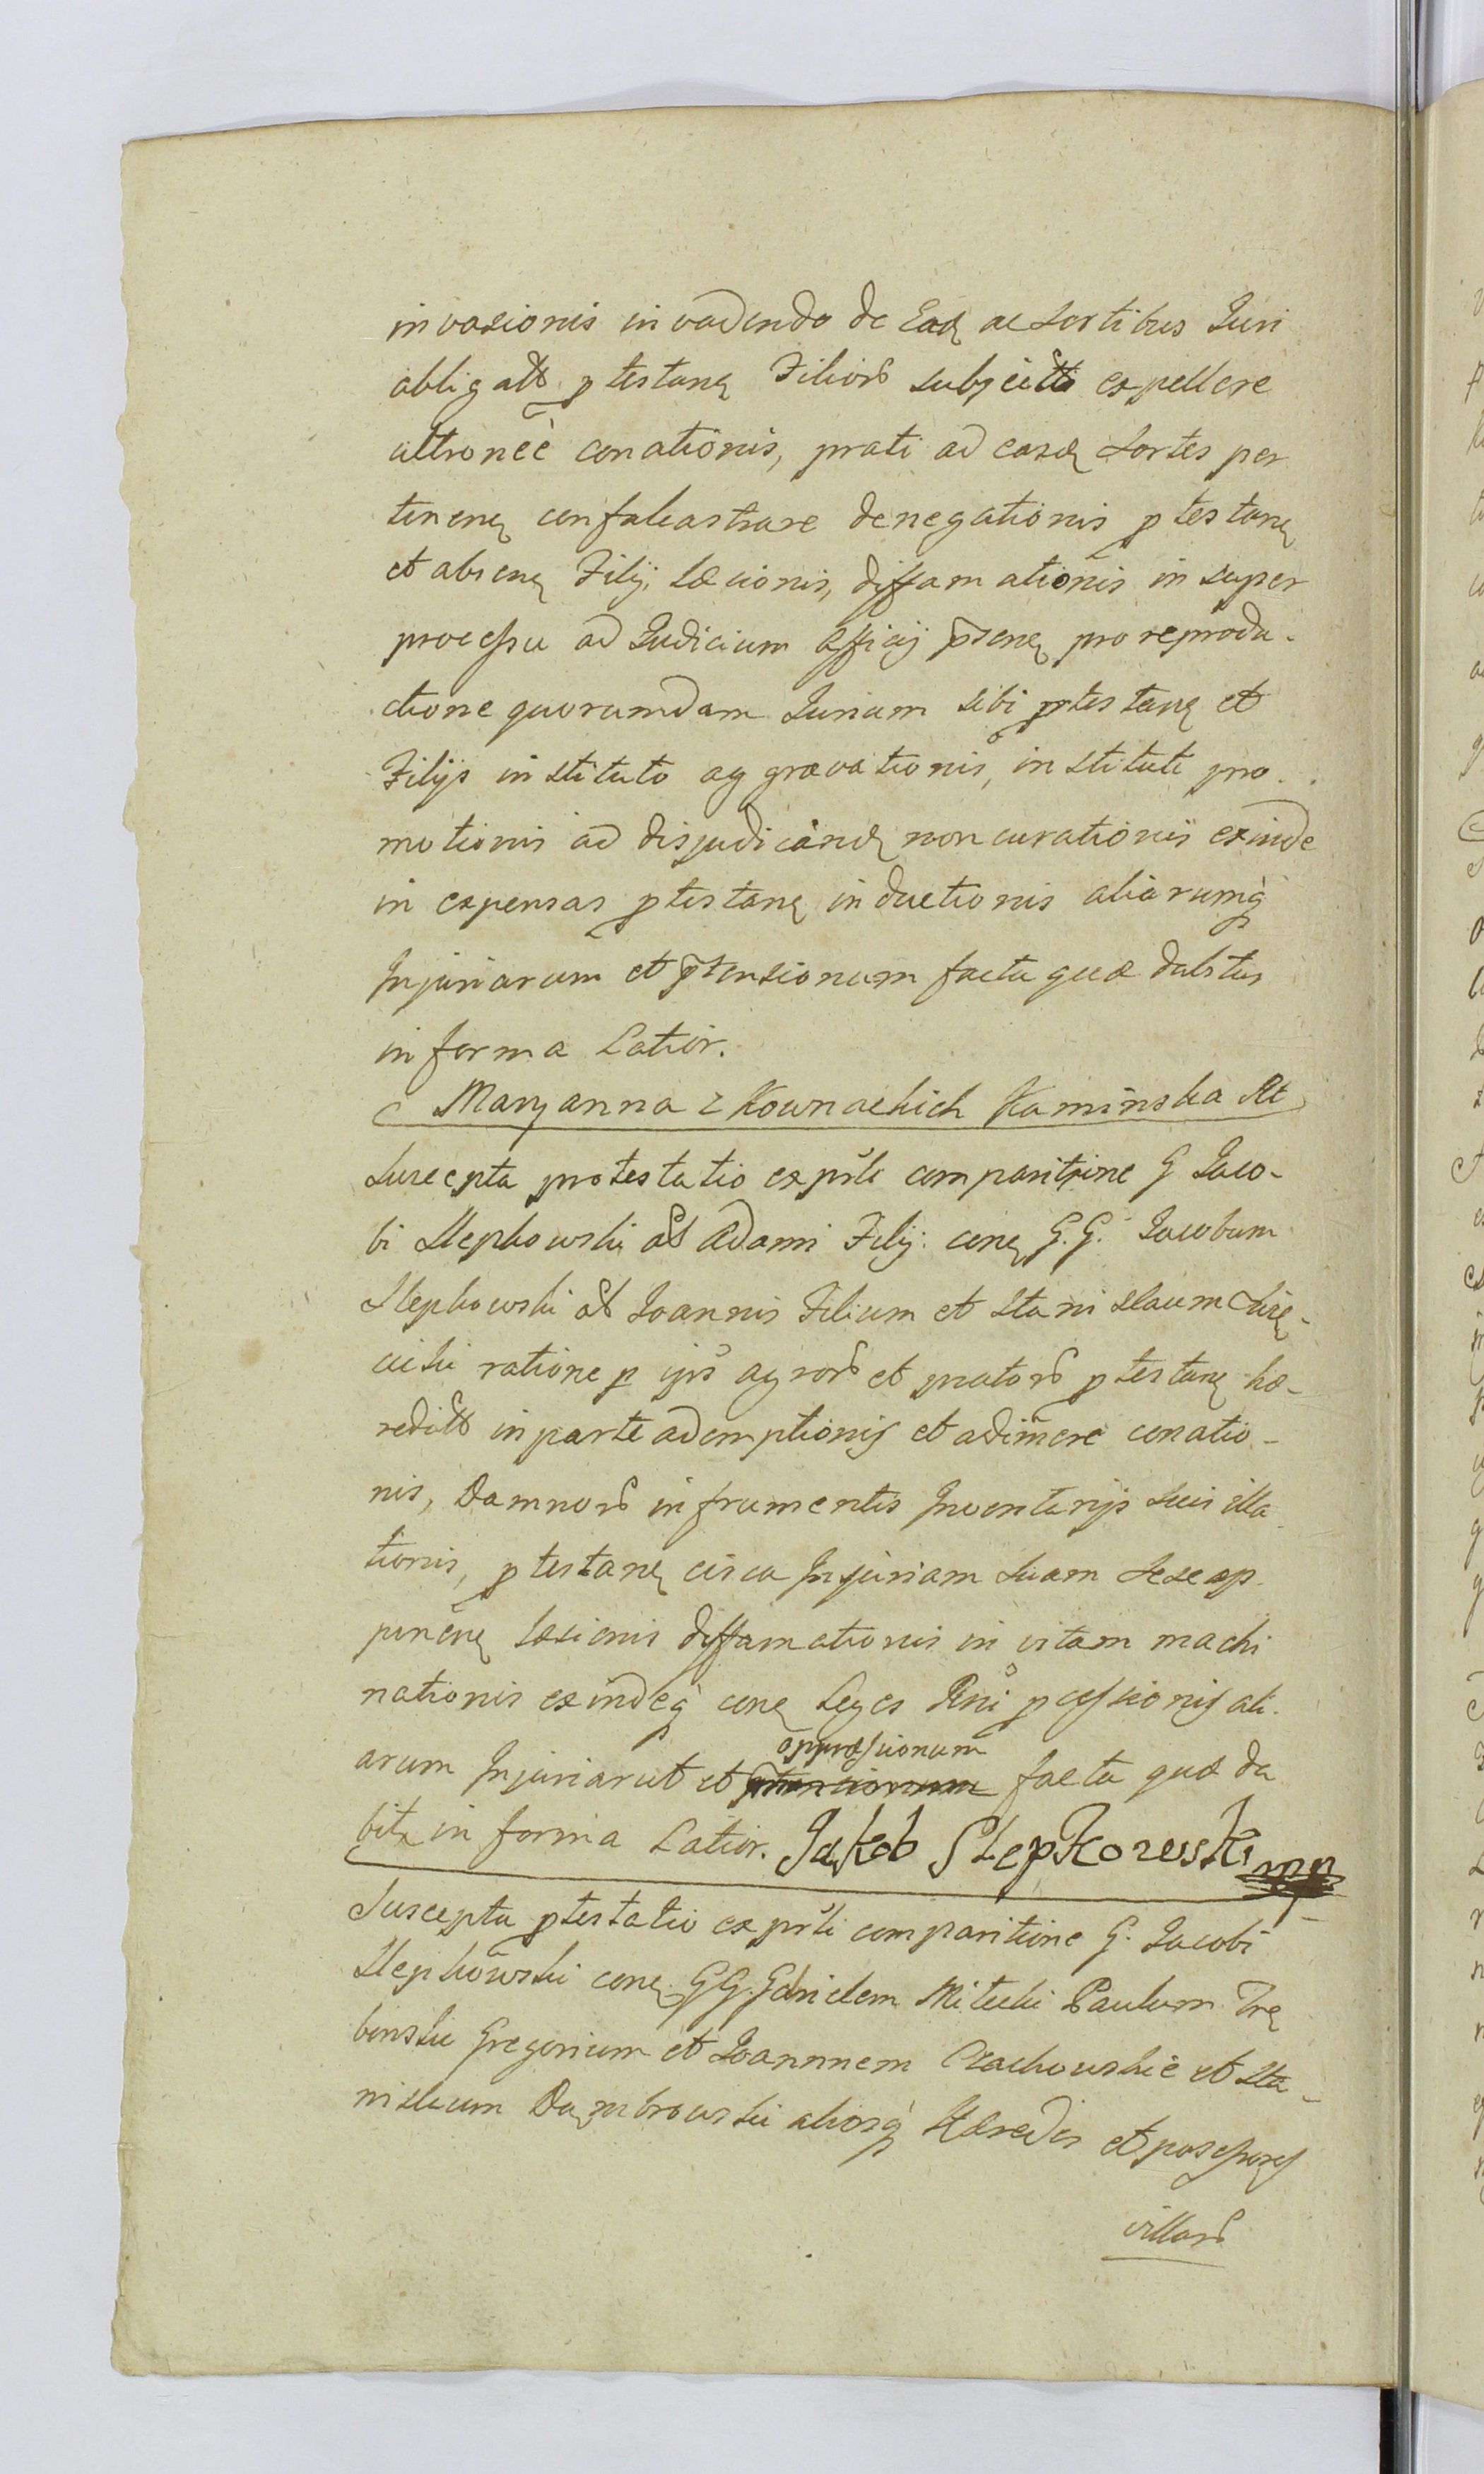 invasionis invadendo de Ead ac sortibus Juri
obligatt ptestanę Filiorb subjectt expellere
ultroneè conationis, prati ad easdę sortes per
tinenę confalcastrare denegationis ptestanę
et absenę Filij. læsionis, diffamationis in super
processu ad Judicium officij psenę pro reprodu-
ctione quorumdam Jurium sibi ptestanę et
Filijs instituto aggravationis, instituti pro-
motionis ad disjudicandę non curationis exinde
in expensas ptestanę inductionis aliarumq
Injuriarum et ptensionum facta quæ dabitur
in forma Latior.
Maryanna z Kownackich Kaminska
Suscepta protestatio ex psli comparitione G Jaco-
bi Slepkowski ad Adami Filij. conę G.G. Jacobum
Slepkowski ad Joannis Filium et Stanislaum
ratione p ips agrorb et pratorb ptestanę hæ-
reditt in parte ademptionis et adimere conatio-
nis, Damnorb in frumentis Inventarijs suis illa
tionis, ptestanę circa Injuriam suam sese op-
ponenę læsionis diffamationis in vitam machi
nationis exindeq conę Leges Rni pcessionis ali-
arum Injuriarum et oppressionum facta quæ da
bitr in forma Latior. Jakob Slepkowski mp
Suscepta ptestatio ex psli comparitione G. Jacobi
Slepkowski conę GG. Gabrielem Mitecki Paulum Trę
binskie Gregorium et Joannnem Czachowskie et Sta-
nislaum Dąmbrowski aliosq Hæredes et possesores
villarb